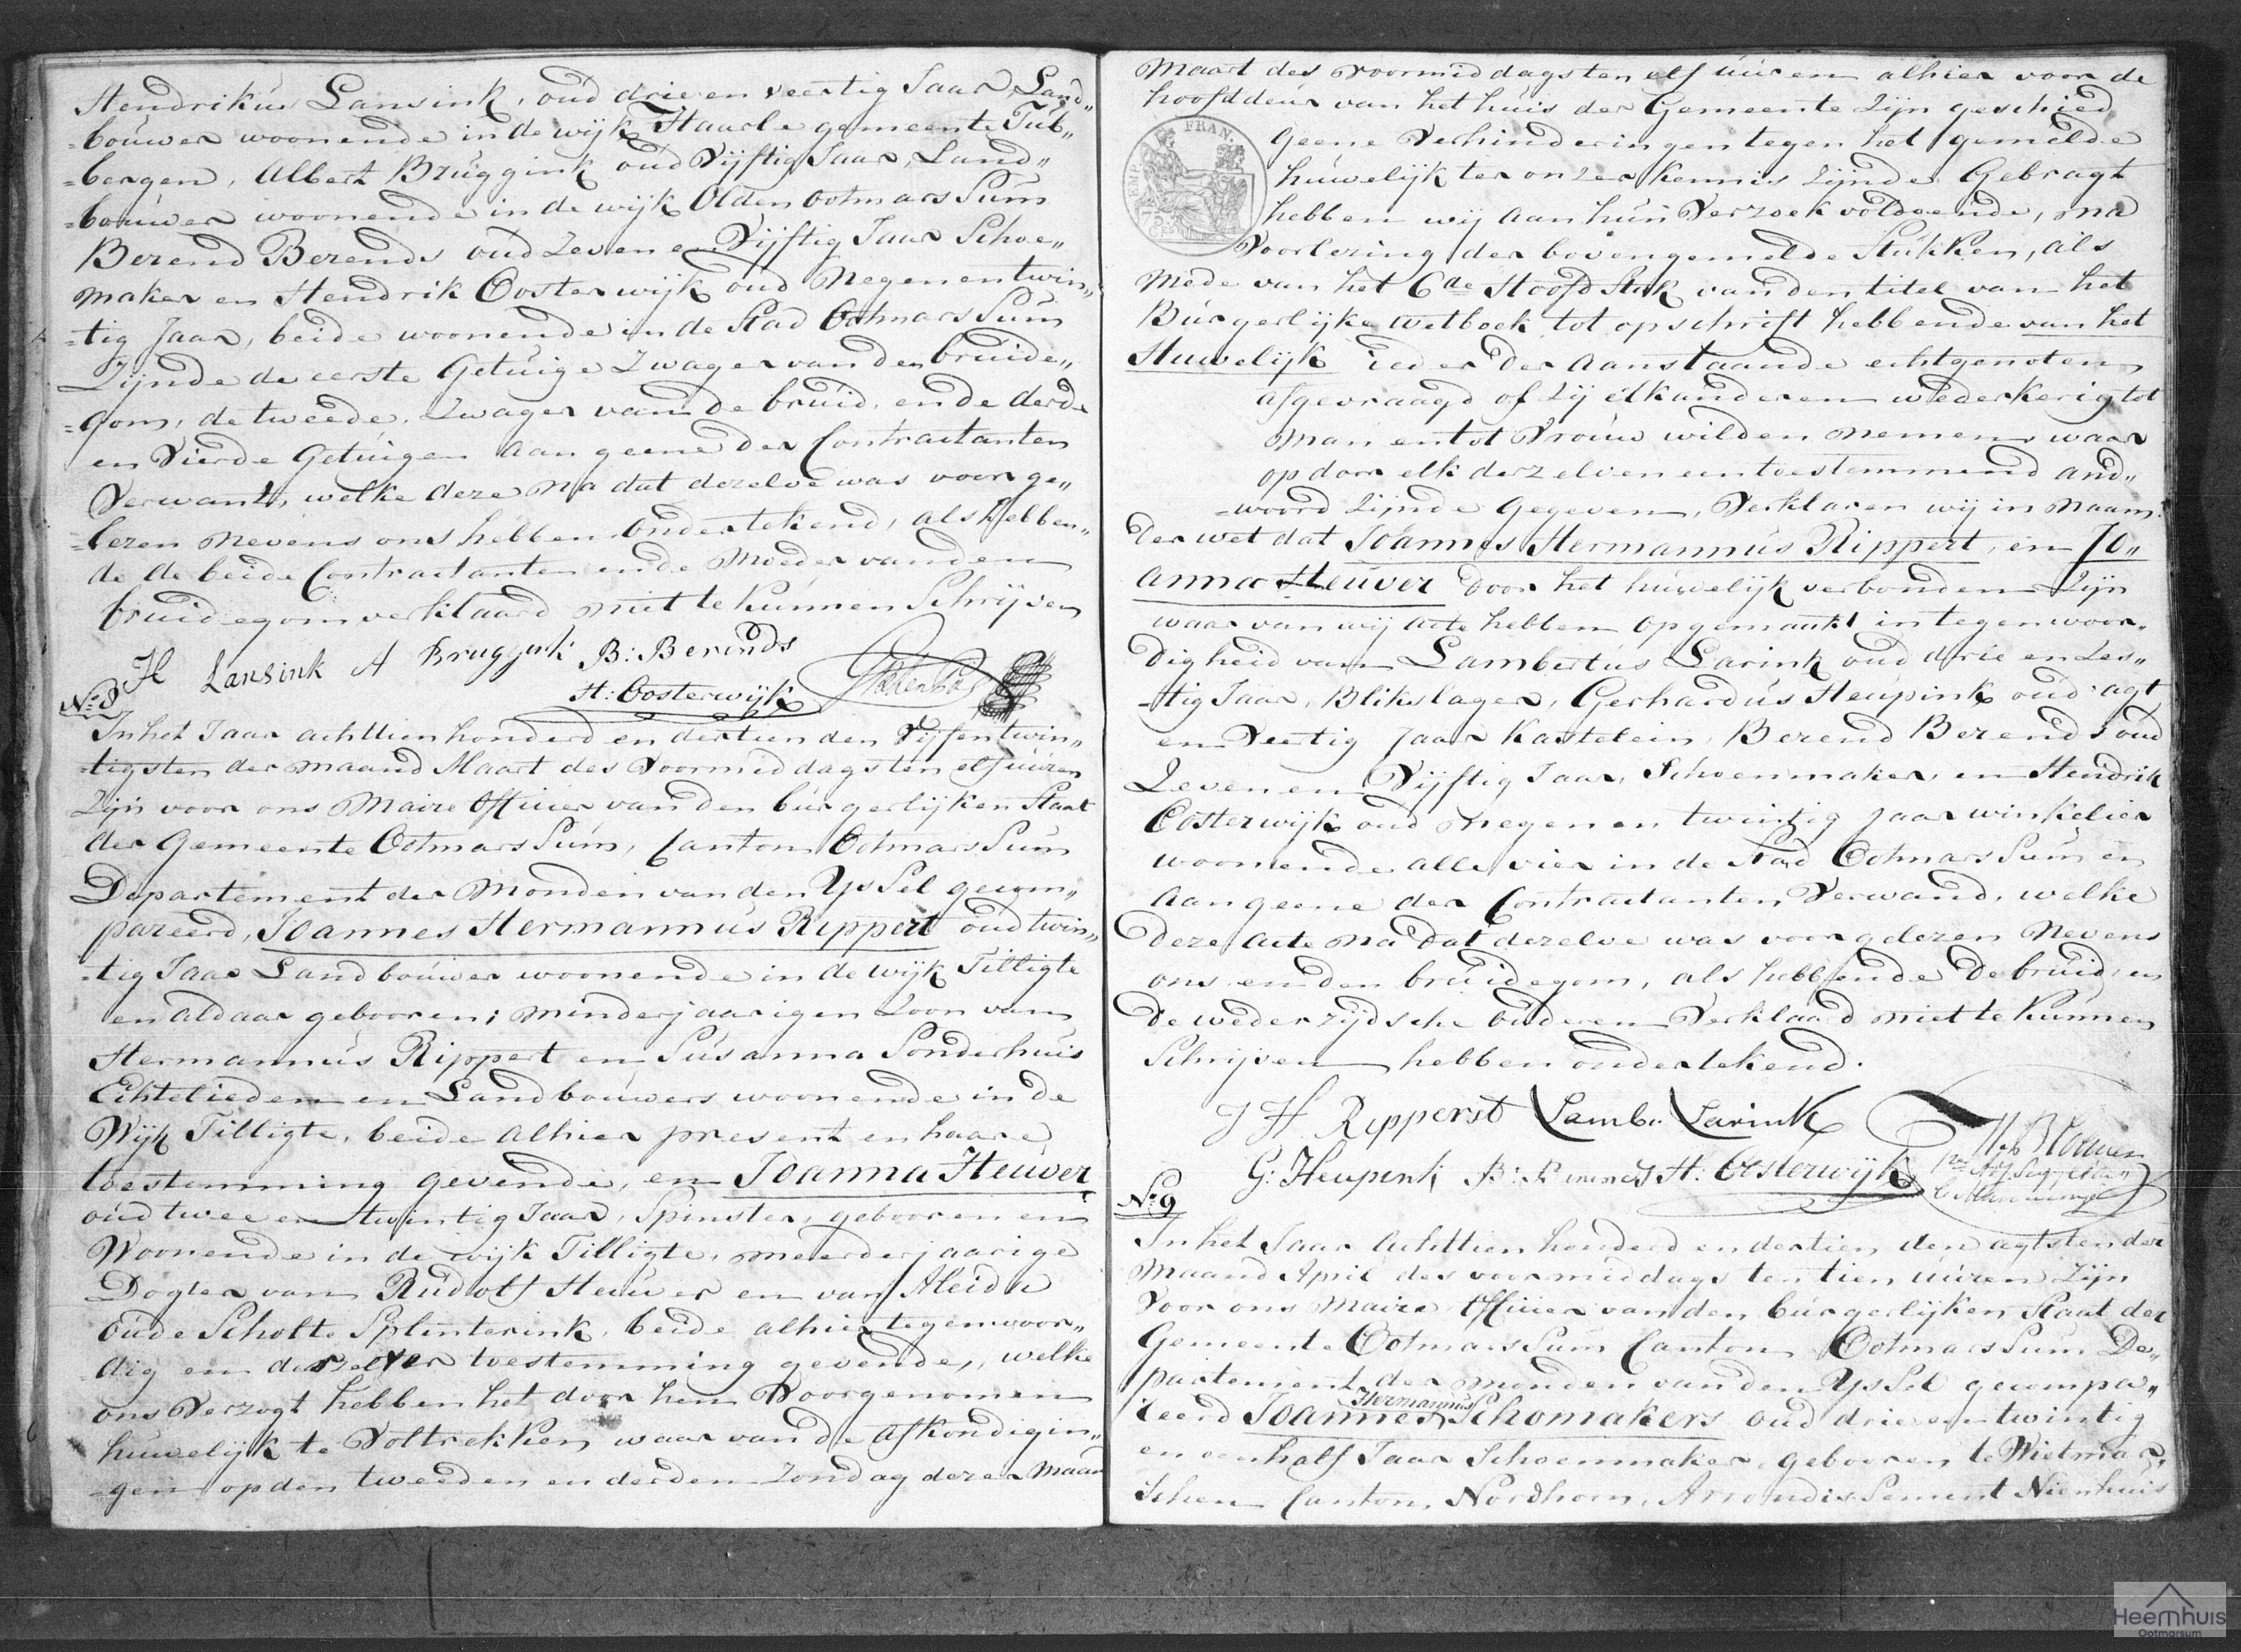 Hendrikus Lansink, oud drie en veertig Jaar, Land„
=bouwer woonende in de wijk Haarle gemeente Tub„
=bergen, Albert Bruggink oud Vijftig Jaar, Land„
=bouwer woonende in de wijk Olden ootmarssum
Berend Berends oud Zeven en Vijftig Jaar Schoe„
maker en Hendrik Oosterwijk oud Negen en twin„
=tig Jaar, beide woonende in de Stad Ootmarssum
Zijnde de eerste Getuige Zwager van den bruide„
=gom, de tweede Zwager van de bruid, en de derde
en Vierde Getuigen aan geene der Contractanten
Verwant, welke deze na dat dezelve was voor ge„
=lezen nevens ons hebben ondertekend, als hebben„
de de beide Contractanten en de Moeder van den
bruidegom verklaard niet te kunnen Schrijven
H Lansink A Bruggink B: Berends
H: Oosterwijk
No. 8
In het Jaar achttien honderd en dertien den Vijfentwin„
=tigsten der maand Maart des Voormiddags ten elf uuren
Zijn voor ons Maire Officier van den burgerlijken Staat
der Gemeente Ootmarssum, Canton Ootmarssum
Departement der Monden van den Yssel gecom„
pareerd, Joannes Hermannus Rippert oud twin„
=tig Jaar Landbouwer woonende in de wijk Tilligte
en aldaar gebooren; minderjaarigen Zoon van
Hermannus Rippert en Susanna Sonderhuis
Echtelieden en Landbouwers woonende in de
Wijk Tilligte, beide alhier present en haare
toestemming gevende, en Joanna Heuver
oud twee en twintig Jaar, Spinster, gebooren en
Woonende in de wijk Tilligte, meerderjaarige
Dogter van Rudolf Heuver en van Aleida
oude Scholte Splinterink, beide alhier tegenwoor„
dig en derzelver toestemming gevende, welke
ons Verzogt hebben het door hen Voorgenomen
huwelijk te Voltrekken waar van de afkondigin„
=gen op den tweeden en derden Zondag dezer Maand
Maart des voormiddags ten elf uuren alhier voor de
hoofddeur van het huis der Gemeente Zijn geschied
FRAN.
75
geene Verhinderingen tegen het gemelde
huwelijk ter onzer kennis Zijnde Gebragt
hebben wij aan hun Verzoek voldoende, na
Voorlezing der bovengemelde Stukken, als
Mede van het 6de Hoofdstuk van den titel van het
Burgerlijke wetboek tot opschrift hebbende van het
Huwelijk ieder der aanstaande echtgenoten
afgevraagd of Zij elkanderen wederkerig tot
man en tot Vrouw wilden nemen waar
op door elk derzelven een toestemmend and„
=woord Zijnde gegeven, Verklaren wij in naam
der wet dat Joannes Hermannus Rippert, en Jo„
anna Heuver door het huwelijk verbonden Zijn
waar van wij acte hebben opgemaakt in tegenwoor„
digheid van Lambertus Larink oud drie en Zes„
=tig Jaar, Blikslager, Gerhardus Heupink oud agt
en Veertig Jaar Kastelein, Berend Berends oud
Zeven en Vijftig Jaar, Schoenmaker, en Hendrik
Oosterwijk oud Negen en twintig Jaar winkelier
woonende alle vier in de Stad Ootmarssum en
aan geene der Contractanten Verwand, welke
deze acte na dat dezelve was voorgelezen Nevens
ons en den bruidegom, als hebbende de bruid, en
de wederzijdsche ouderen Verklaard niet te kunnen
Schrijven hebben ondertekend.
J H Ripperst Lamb: Larink
G: Heupink B: Berends H: Oosterwijk
No. 9
In het Jaar achttien honderd en dertien den agtsten der
Maand April des voormiddags ten tien uuren Zijn
Voor ons Maire Officier van den burgerlijken Staat der
Gemeente Ootmarssum Canton Ootmarssum De„
partement der Monden van den Yssel gecompa„
reerd Joannes Hermannus Schomakers oud drie en twintig
en een half Jaar Schoenmaker, gebooren te Wietmar„
schen Canton Nordhorn, Arrondissement Nienhuis
Heemhuis
Ootmarsum